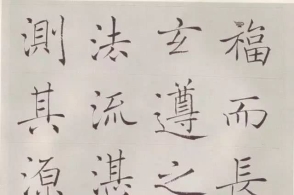 福而長
玄遵之
法流湛
測其源